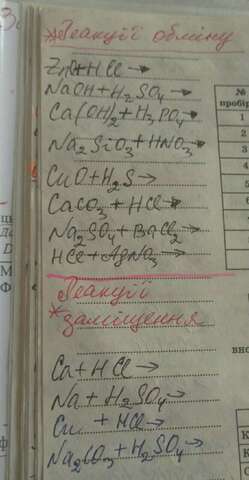 *Реакції обміну
ZnO+HCl→
NaOH+H2SO4→
Ca(OH)2+H3PO4→
Na2SiO3+HNO3→
CuO+H2S→
CaCO3+HCl→
Na2SO4+BaCl2→
HCl+AgNO3→
Реакції
*заміщення
Ca+HCl→
Na+H2SO4→
Cu+HCl→
Na2CO3+H2SO4→
№
пробір
1
2
3
4
5
внос
К
К